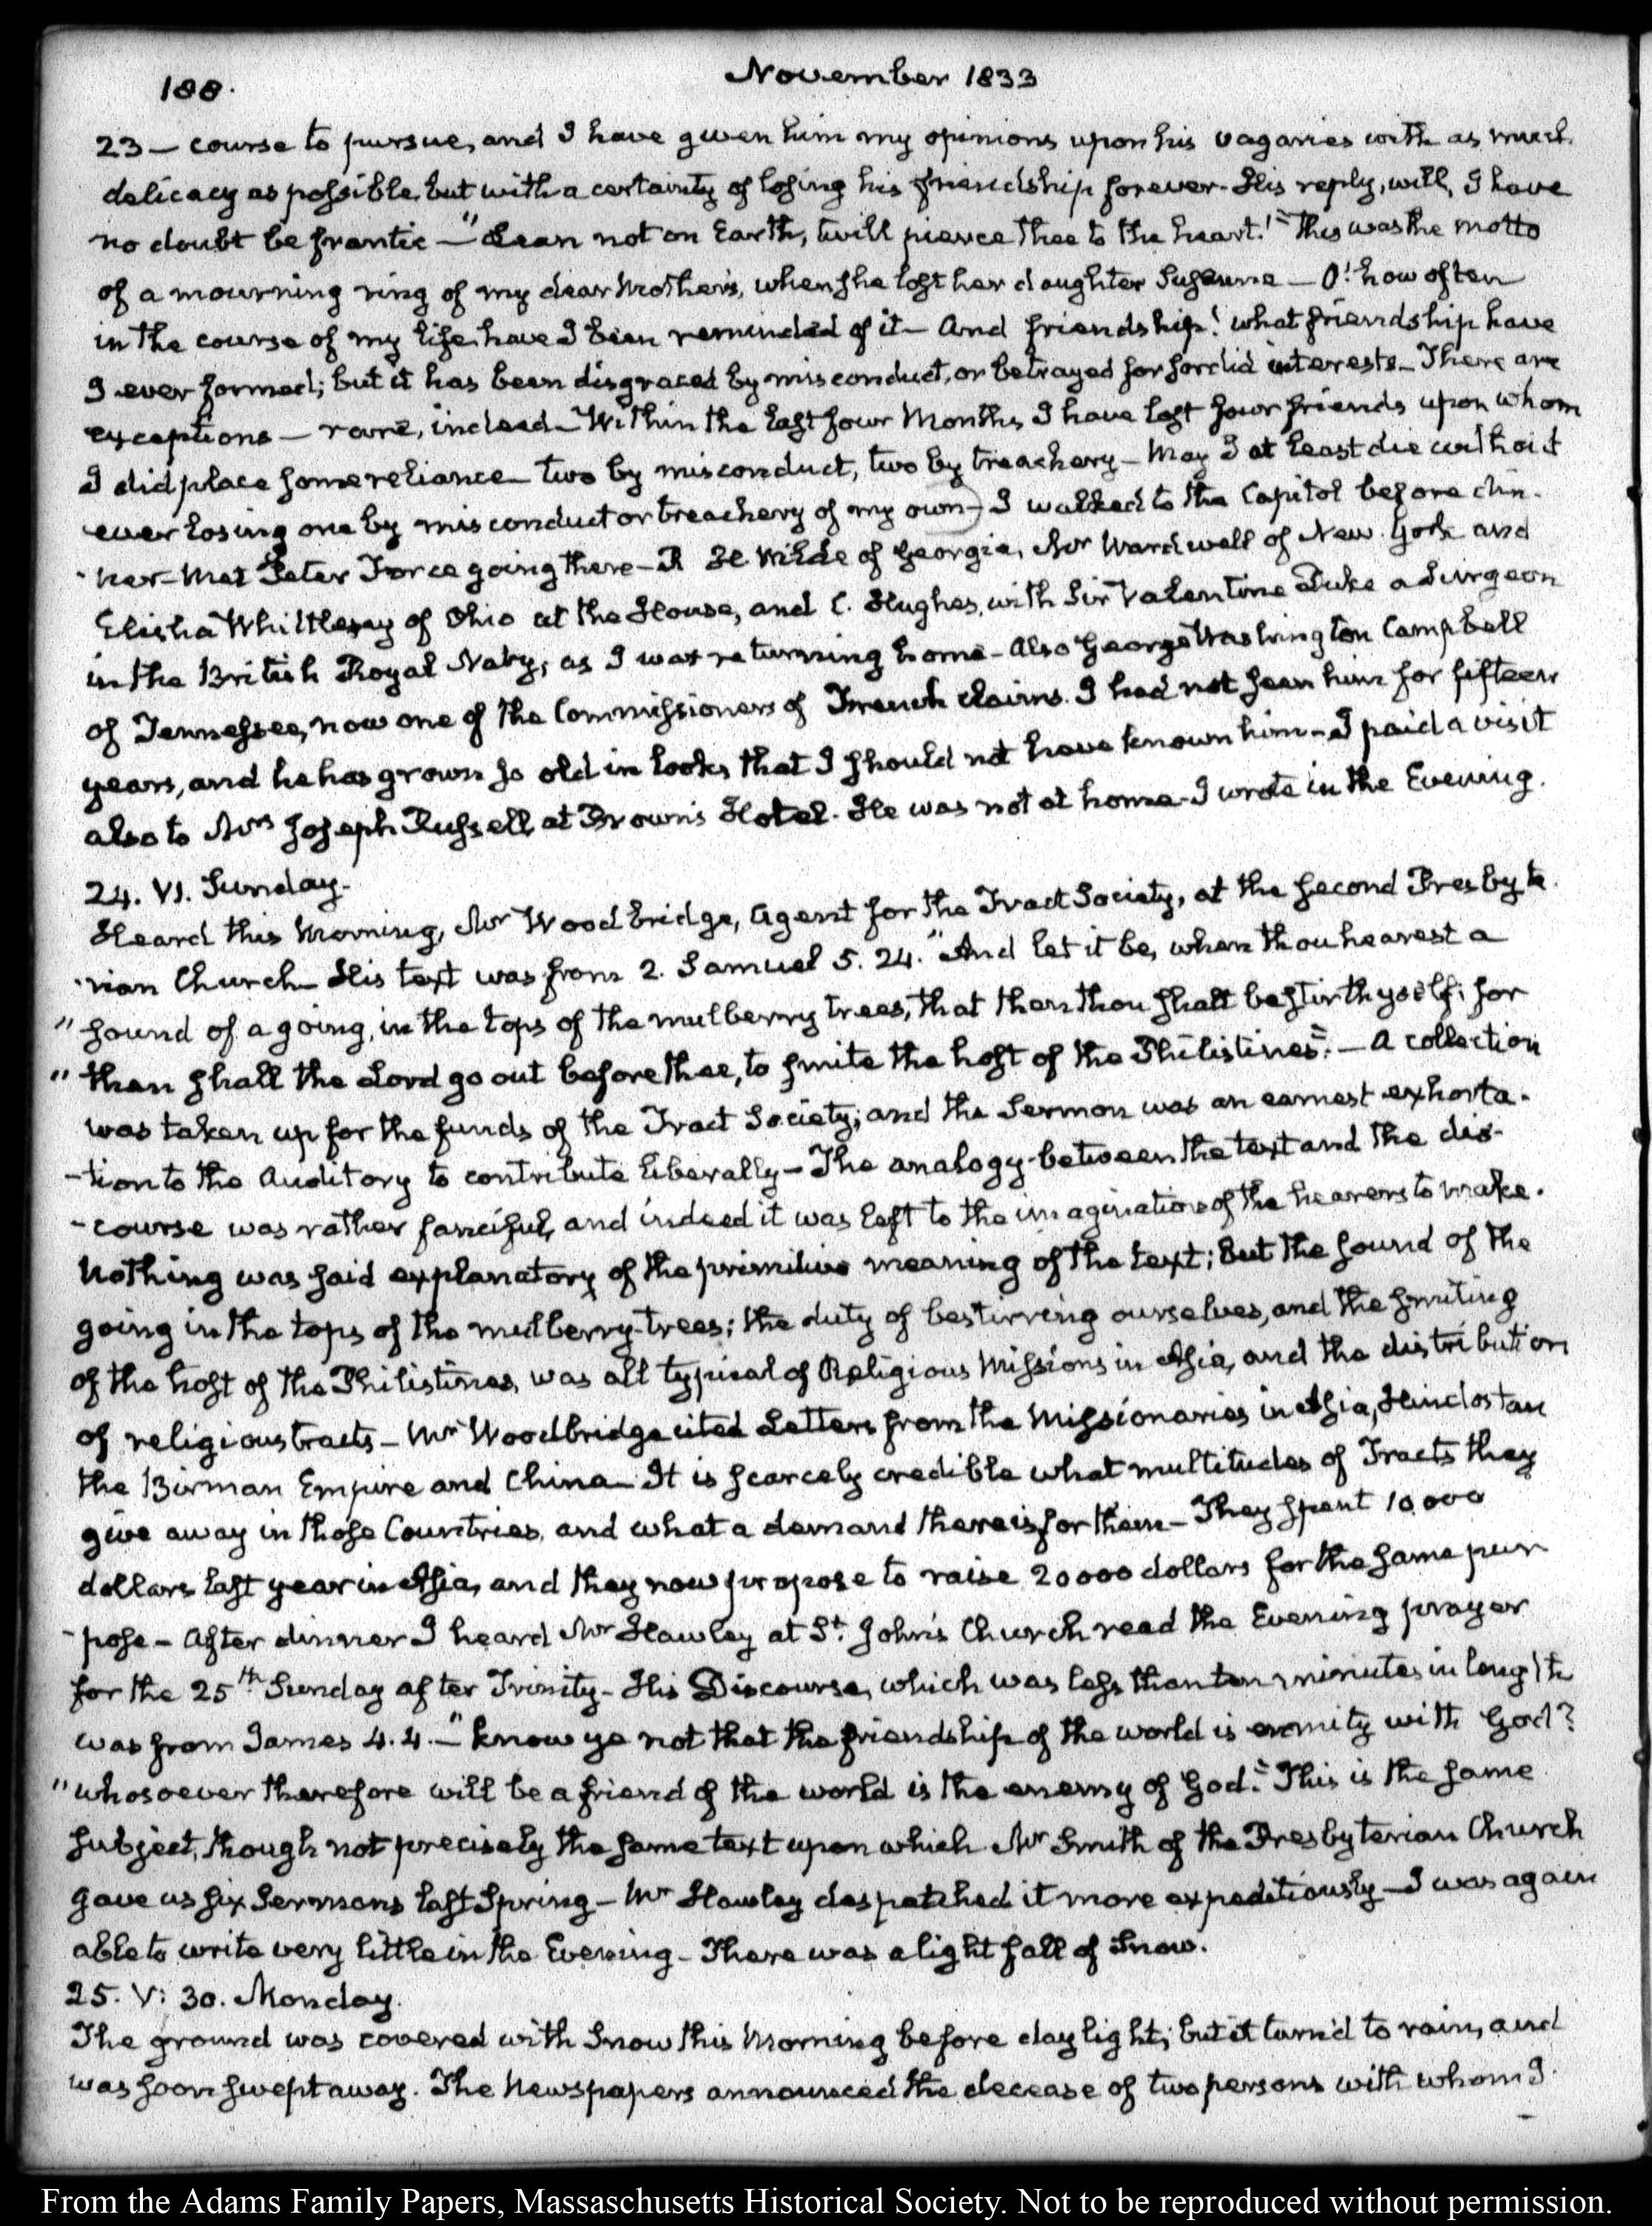 188.
November 1833
23 — course to pursue, and I have given him my opinions upon his vagaries with as much
delicacy as possible, but with a certainty of losing his friendship forever. His reply, will, I have
no doubt be frantic — "Lean not on Earth, twill pierce thee to the heart!" This was the motto
of a mourning ring of my dear Mother's, when she lost her daughter Susanna — O! how often
in the course of my life have I been reminded of it — And friendship! what friendship have
I ever formed; but it has been disgraced by misconduct, or betrayed for sordid interests — There are
exceptions — rare, indeed — Within the last four Months I have lost four friends upon whom
I did place some reliance — two by misconduct, two by treachery — May I at least die without
ever losing one by misconduct or treachery of my own — I walked to the Capitol before din-
-ner — Met Peter Force going there — R H Wilde of Georgia, Mr Wardwell of New-York and
Elisha Whittlesey of Ohio at the House, and C. Hughes, with Sir Valentine Duke a Surgeon
in the British Royal Navy, as I was returning home — Also George Washington Campbell
of Tennessee, now one of the Commissioners of French claims. I had not seen him for fifteen
years, and he has grown so old in looks, that I should not have known him — I paid a visit
also to Mrs Joseph Russell at Brown's Hotel. He was not at home. I wrote in the Evening.
24. VI. Sunday.
Heard this Morning, Mr Woodbridge, Agent for the Tract Society, at the second Presbyte
-rian Church — His text was from 2. Samuel 5. 24. "And let it be, when thou hearest a
"sound of a going, in the tops of the mulberry trees, that then thou shalt bestir thyself; for
"then shall the Lord go out before thee, to smite the host of the Philistines." — A collection
was taken up for the funds of the Tract Society; and the Sermon was an earnest exhorta-
-tion to the Auditory to contribute liberally — The analogy between the text and the dis-
-course was rather fanciful, and indeed it was left to the imagination of the hearers to make.
Nothing was said explanatory of the primitive meaning of the text; But the sound of the
going in the tops of the mulberry-trees; the duty of bestirring ourselves, and the smiting
of the host of the Philistines, was all typical of Religious Missions in Asia, and the distribution
of religious tracts — Mr Woodbridge cited Letters from the Missionaries in Asia, Hindostan
the Birman Empire and China — It is scarcely credible what multitudes of Tracts they
give away in those Countries, and what a demand there is for them — They spent 10,000
dollars last year in Asia, and they now propose to raise 20000 dollars for the same pur
-pose — After dinner I heard Mr Hawley at St. John's Church read the Evening prayer
for the 25th Sunday after Trinity — His Discourse, which was less than ten minutes in length
was from James 4. 4. — "Know ye not that the friendship of the world is enmity with God?
"whosoever therefore will be a friend of the world is the enemy of God." This is the same
subject, though not precisely the same text upon which Mr Smith of the Presbyterian Church
gave us six Sermons last Spring — Mr Hawley despatched it more expeditiously — I was again
able to write very little in the Evening — There was a light fall of Snow.
25. V: 30. Monday.
The ground was covered with Snow this Morning before daylight; but it turn'd to rain, and
was soon swept away. The Newspapers announced the decease of two persons with whom I
From the Adams Family Papers, Massaschusetts Historical Society. Not to be reproduced without permission.